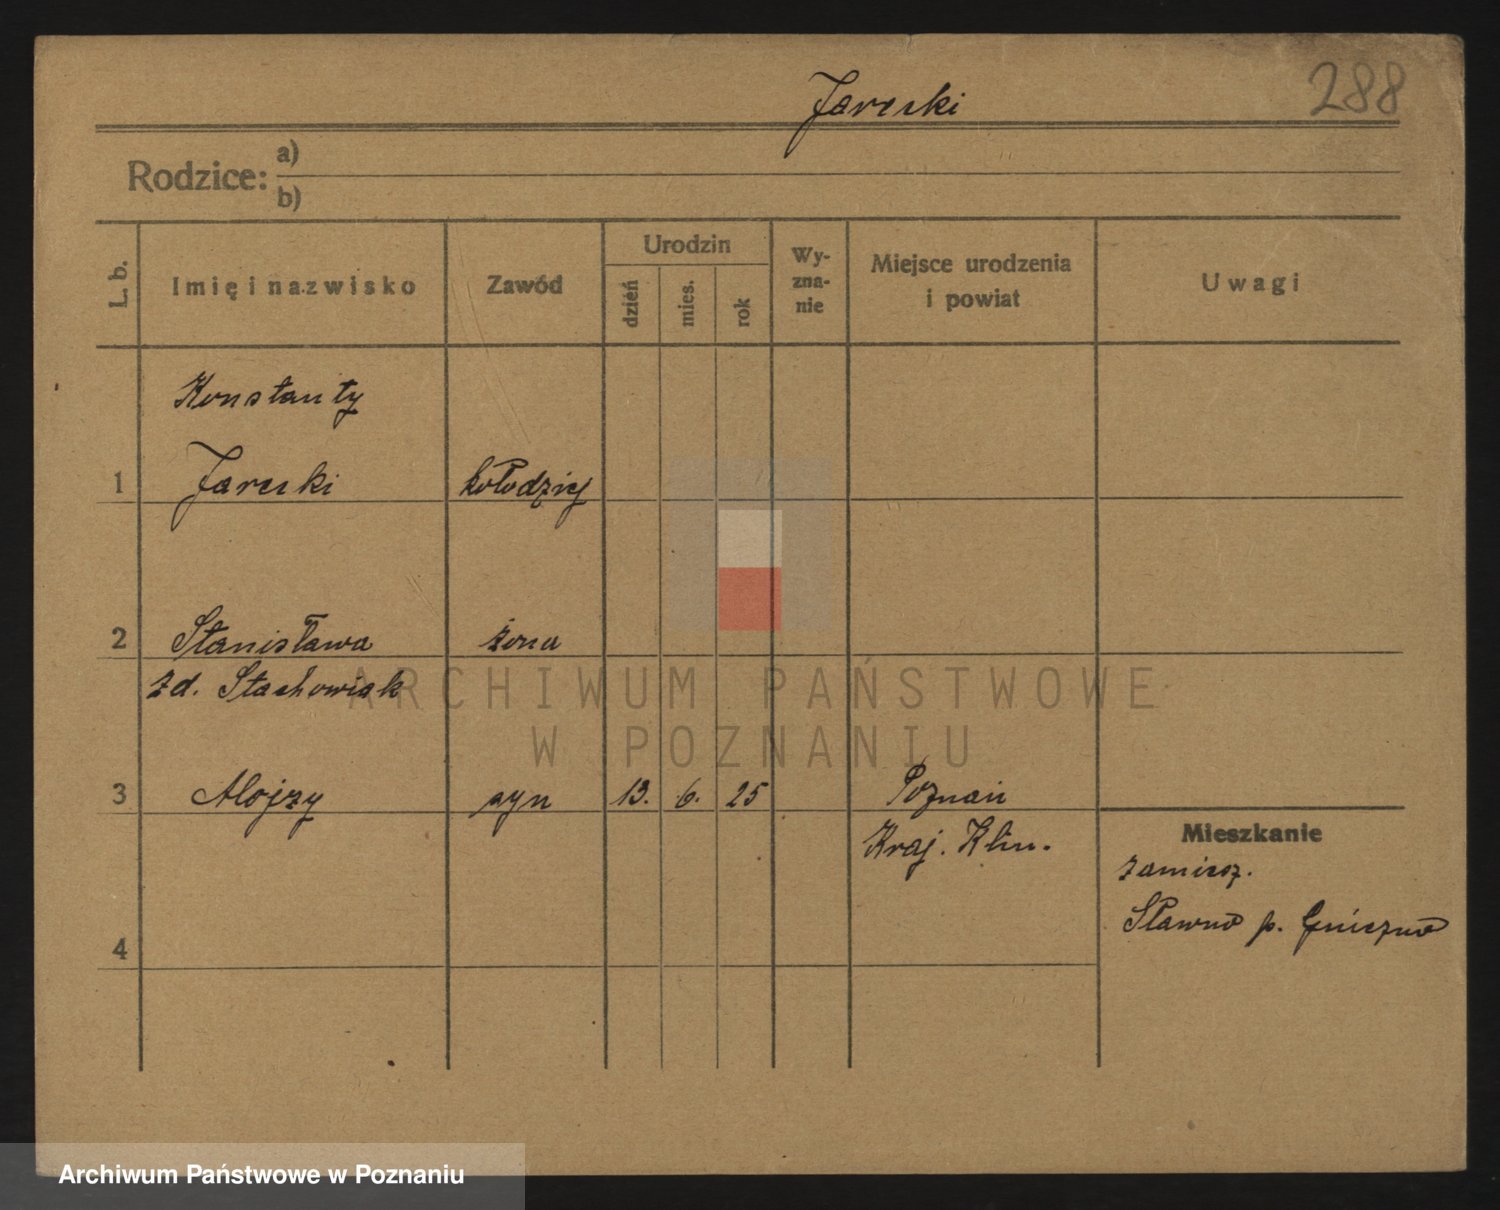 Jarecki 288
Rodzice: a)
b)
L. b. Imię i nazwisko Zawód Urodzin dzień mies. rok Wyzna-nie Miejsce urodzenia i powiat Uwagi
Konstanty
1 Jarecki kołodziej
2 Stanisława żona
zd. Stachowiak
ARCHIWUM PAŃSTWOWE
W POZNANIU
3 Alojzy syn 13. 6. 25 Poznań
Mieszkanie
Kraj. Klin.
zamiesz.
Sławno p. Gniezno
4
Archiwum Państwowe w Poznaniu